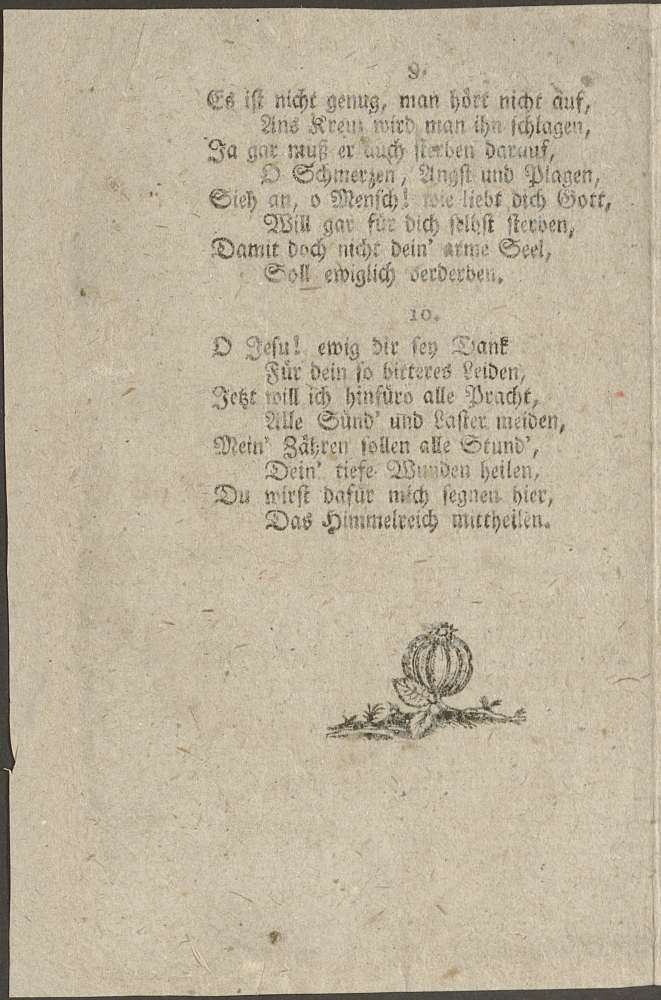 9.
Es ist nicht genug, man hört nicht auf,
Ans Kreuz wird man ihn schlagen,
Ja gar muß er auch sterben darauf,
O Schmerzen, Angst und Plagen,
Sieh an, o Mensch! wie liebt dich Gott,
Will gar für dich selbst sterben,
Damit doch nicht dein' arme Seel,
Soll ewiglich verderben.
10.
O Jesu! ewig dir sey Dank
Für dein so bitteres Leiden,
Jetzt will ich hinfüro alle Pracht,
Alle Sünd' und Laster meiden,
Mein' Zähren sollen alle Stund',
Dein' tiefe Wunden heilen,
Du wirst dafür mich segnen hier,
Das Himmelreich mittheilen.